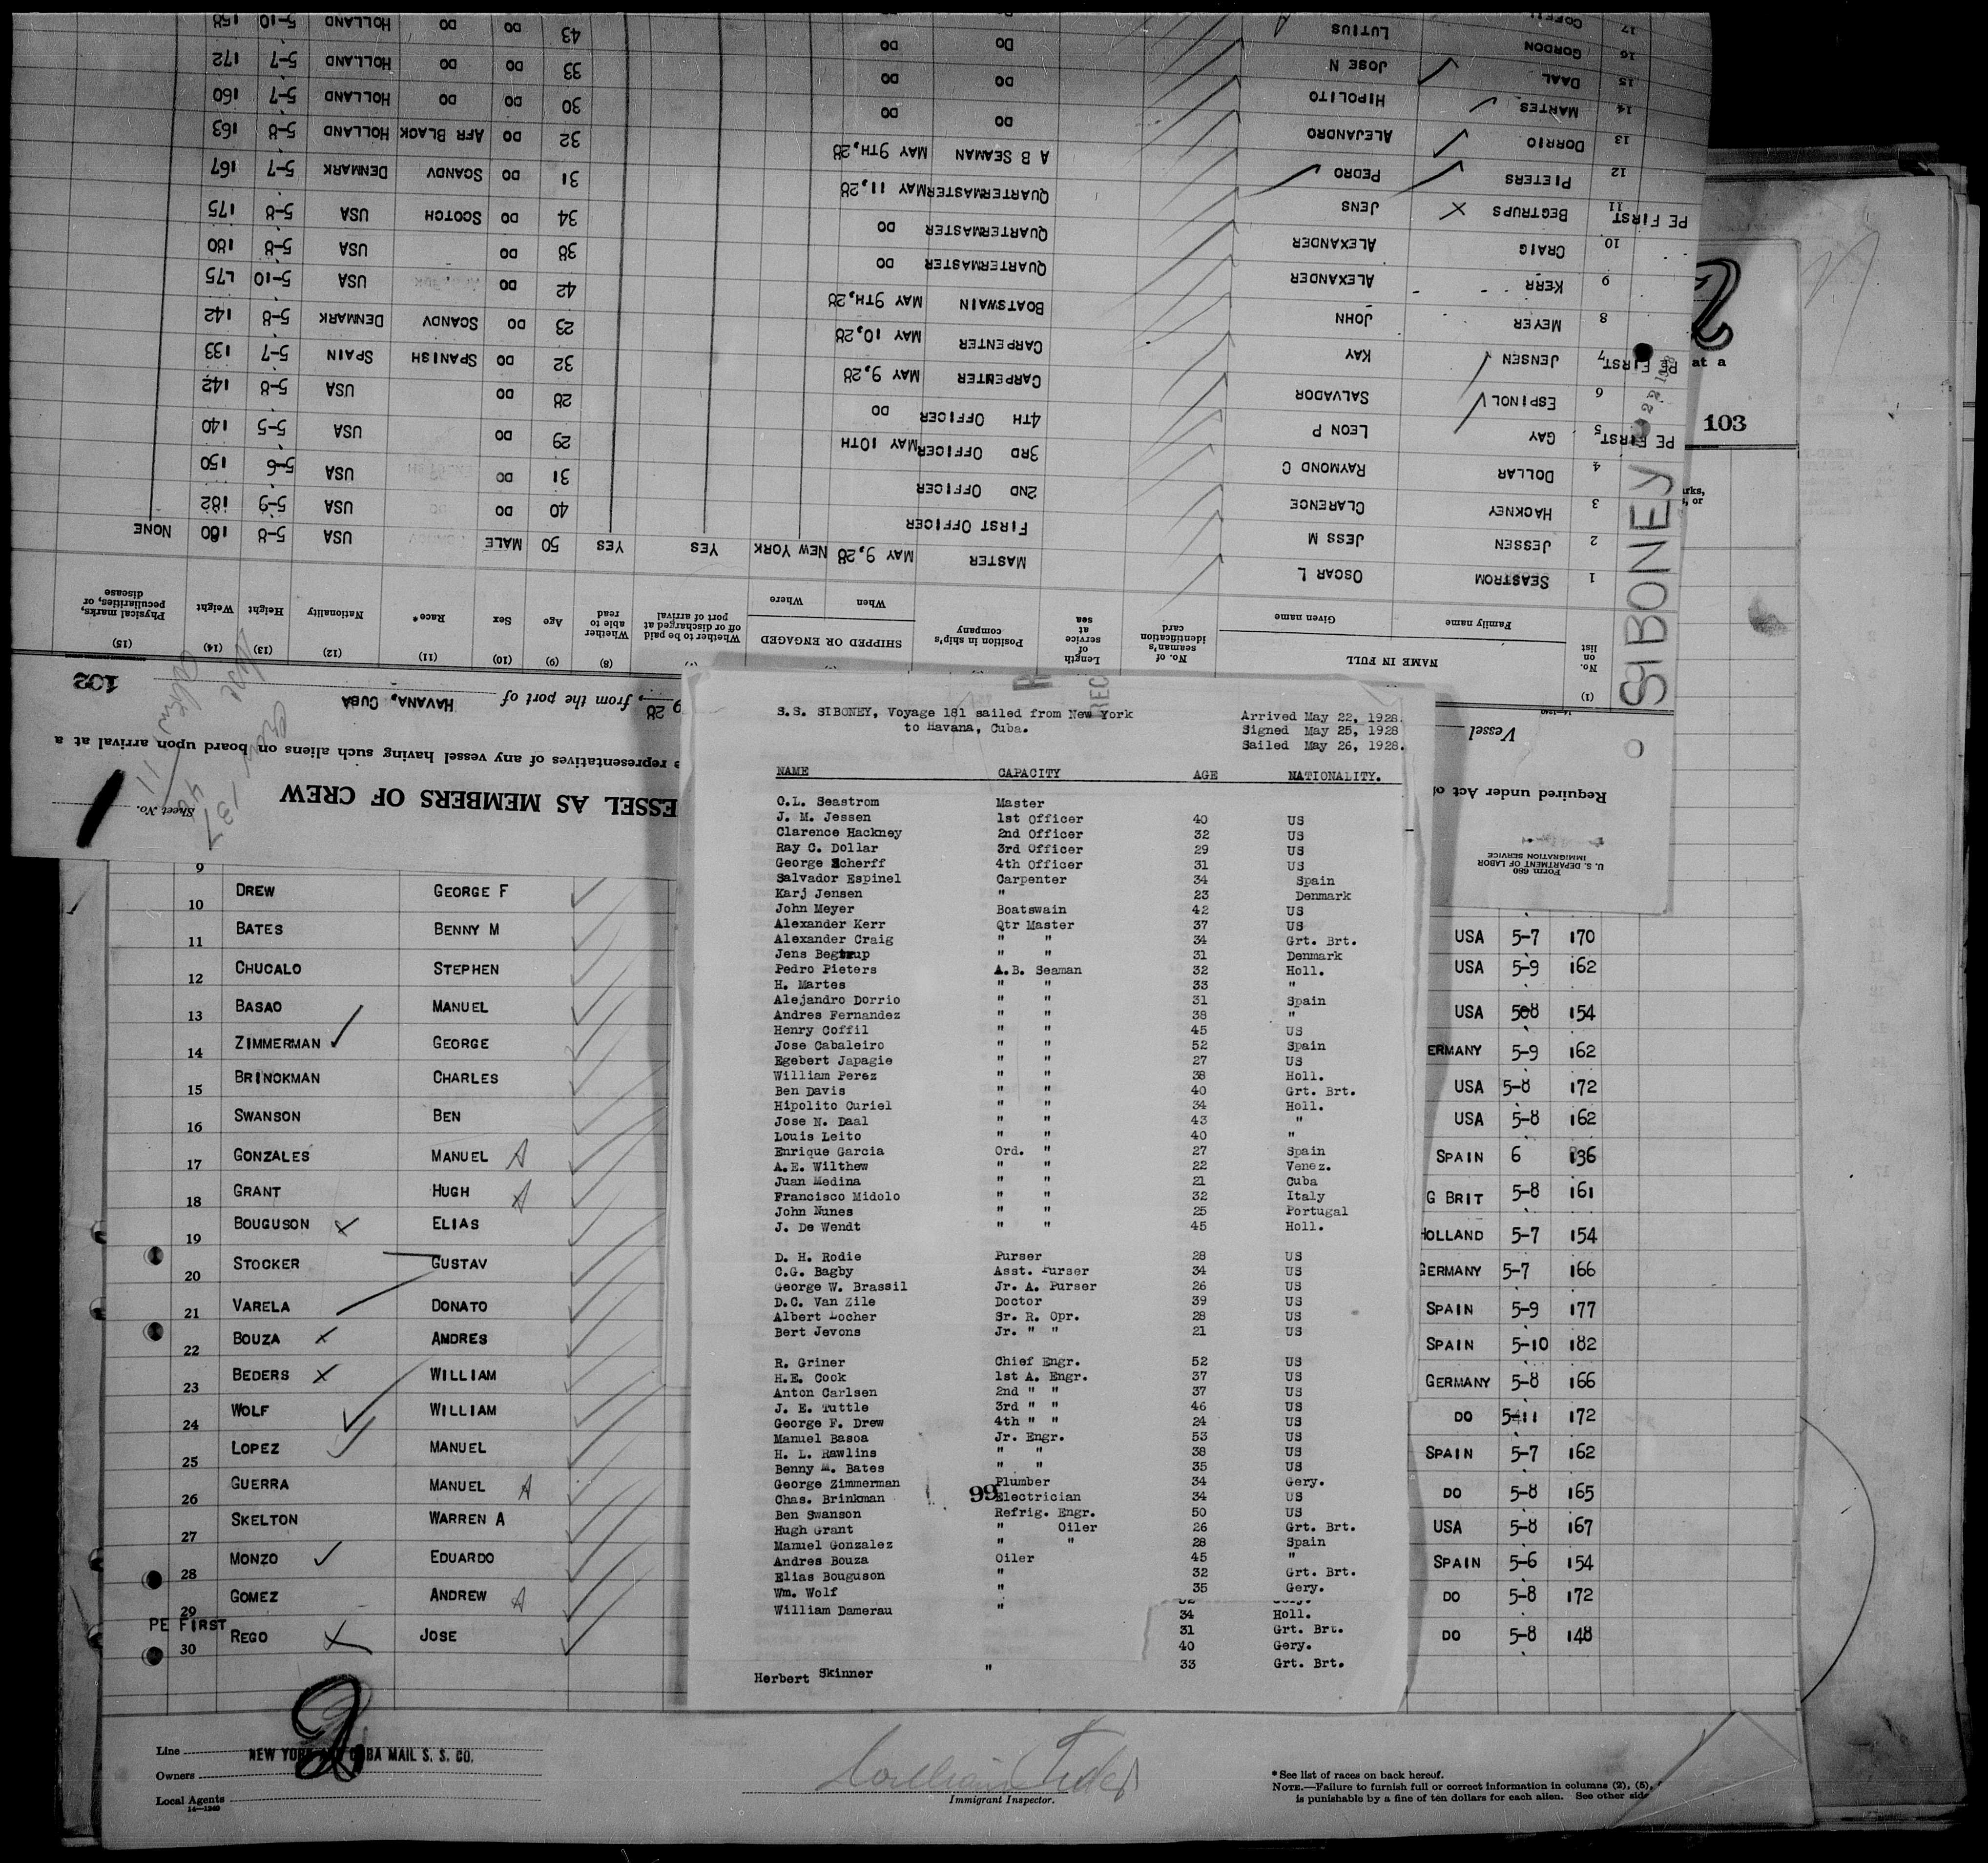 Form 680
U. S. DEPARTMENT OF LABOR
IMMIGRATION SERVICE
Required under Act of
ESSEL AS MEMBERS OF CREW
Sheet No.
representatives of any vessel having such aliens on board upon arrival at a
Vessel
28, from the port of HAVANA, CUBA
102
SIBONEY
(1) (8) (9) (10) (11) (12) (13) (14) (15)
No. on list
NAME IN FULL
Family name Given name
No. of seaman's identification card
Length of service at sea
Position in ship's company
SHIPPED OR ENGAGED
When Where
Whether to be paid off or discharged at port of arrival
Whether able to read
Age Sex Race* Nationality Height Weight
Physical marks, peculiarities, or disease
1 SEASTROM OSCAR L MASTER MAY 9,28 NEW YORK YES YES 50 MALE USA 5-8 180 NONE
2 JESSEN JESS M FIRST OFFICER 40 DO USA 5-9 182
3 HACKNEY CLARENCE 2ND OFFICER 31 DO USA 5-6 150
4 DOLLAR RAYMOND C 3RD OFFICER MAY 10TH 29 DO USA 5-5 140
PE FIRST 5 GAY LEON P 4TH OFFICER DO 28 DO USA 5-8 142
6 ESPINOL SALVADOR CARPENTER MAY 9,28 32 DO SPANISH SPAIN 5-7 133
PE FIRST 7 JENSEN KAY CARPENTER MAY 10,28 23 DO SCANDV DENMARK 5-8 142
8 MEYER JOHN BOATSWAIN MAY 9TH,28 42 DO USA 5-10 175
9 KERR ALEXANDER QUARTERMASTER DO 38 DO USA 5-8 180
10 CRAIG ALEXANDER QUARTERMASTER DO 34 DO SCOTCH USA 5-8 175
PE FIRST 11 BEGTRUPS JENS QUARTERMASTER MAY 11,28 31 DO SCANDV DENMARK 5-7 167
12 PIETERS PEDRO A B SEAMAN MAY 9TH,28 32 DO AFR BLACK HOLLAND 5-8 163
13 DORRIO ALEJANDRO DO DO 30 DO DO HOLLAND 5-7 160
14 MARTES HIPOLITO DO DO 33 DO DO HOLLAND 5-7 172
15 DAAL JOSE N DO DO 43 DO DO HOLLAND 5-10 158
16 GORDON LUTIUS
17
at a
103
S.S. SIBONEY, Voyage 181 sailed from New York
to Havana, Cuba.
Arrived May 22, 1928.
Signed May 25, 1928
Sailed May 26, 1928.
NAME CAPACITY AGE NATIONALITY.
O.L. Seastrom Master
J. M. Jessen 1st Officer 40 US
Clarence Hackney 2nd Officer 32 US
Ray C. Dollar 3rd Officer 29 US
George Scherff 4th Officer 31 US
Salvador Espinel Carpenter 34 Spain
Karj Jensen " 23 Denmark
John Meyer Boatswain 42 US
Alexander Kerr Qtr Master 37 US
Alexander Craig " " 34 Grt. Brt.
Jens Begtrup " " 31 Denmark
Pedro Pieters A.B. Seaman 32 Holl.
H. Martes " " 33 "
Alejandro Dorrio " " 31 Spain
Andres Fernandez " " 38 "
Henry Coffil " " 45 US
Jose Cabaleiro " " 52 Spain
Egebert Japagie " " 27 US
William Perez " " 38 Holl.
Ben Davis " " 40 Grt. Brt.
Hipolito Curiel " " 34 Holl.
Jose N. Daal " " 43 "
Louis Leito " " 40 "
Enrique Garcia Ord. " 27 Spain
A.E. Wilthew " " 22 Venez.
Juan Medina " " 21 Cuba
Francisco Midolo " " 32 Italy
John Nunes " " 25 Portugal
J. De Wendt " " 45 Holl.
D. H. Rodie Purser 28 US
C.G. Bagby Asst. Purser 34 US
George W. Brassil Jr. A. Purser 26 US
D.C. Van Zile Doctor 39 US
Albert Locher Sr. R. Opr. 28 US
Bert Jevons Jr. " " 21 US
R. Griner Chief Engr. 52 US
H.E. Cook 1st A. Engr. 37 US
Anton Carlsen 2nd " " 37 US
J. E. Tuttle 3rd " " 46 US
George F. Drew 4th " " 24 US
Manuel Basoa Jr. Engr. 53 US
H. L. Rawlins " " 38 US
Benny M. Bates " " 35 US
George Zimmerman Plumber 34 Gery.
Chas. Brinkman 99 Electrician 34 US
Ben Swanson Refrig. Engr. 50 US
Hugh Grant " Oiler 26 Grt. Brt.
Manuel Gonzalez " " 28 Spain
Andres Bouza Oiler 45 "
Elias Bouguson " 32 Grt. Brt.
Wm. Wolf " 35 Gery.
William Damerau "
34 Holl.
31 Grt. Brt.
40 Gery.
33 Grt. Brt.
Herbert Skinner "
9
10 DREW GEORGE F USA 5-7 170
11 BATES BENNY M USA 5-9 162
12 CHUCALO STEPHEN USA 508 154
13 BASAO MANUEL ERMANY 5-9 162
14 ZIMMERMAN GEORGE USA 5-8 172
15 BRINCKMAN CHARLES USA 5-8 162
16 SWANSON BEN SPAIN 6 136
17 GONZALES MANUEL G BRIT 5-8 161
18 GRANT HUGH HOLLAND 5-7 154
19 BOUGUSON ELIAS GERMANY 5-7 166
20 STOCKER GUSTAV SPAIN 5-9 177
21 VARELA DONATO SPAIN 5-10 182
22 BOUZA ANDRES GERMANY 5-8 166
23 BEDERS WILLIAM DO 5-11 172
24 WOLF WILLIAM SPAIN 5-7 162
25 LOPEZ MANUEL DO 5-8 165
26 GUERRA MANUEL USA 5-8 167
27 SKELTON WARREN A SPAIN 5-6 154
28 MONZO EDUARDO DO 5-8 172
29 GOMEZ ANDREW DO 5-8 148
PE FIRST
30 REGO JOSE
Line
NEW YORK AND CUBA MAIL S. S. CO.
Owners
Local Agents
14—1240
Immigrant Inspector.
*See list of races on back hereof.
NOTE.—Failure to furnish full or correct information in columns (2), (5),
is punishable by a fine of ten dollars for each alien. See other side